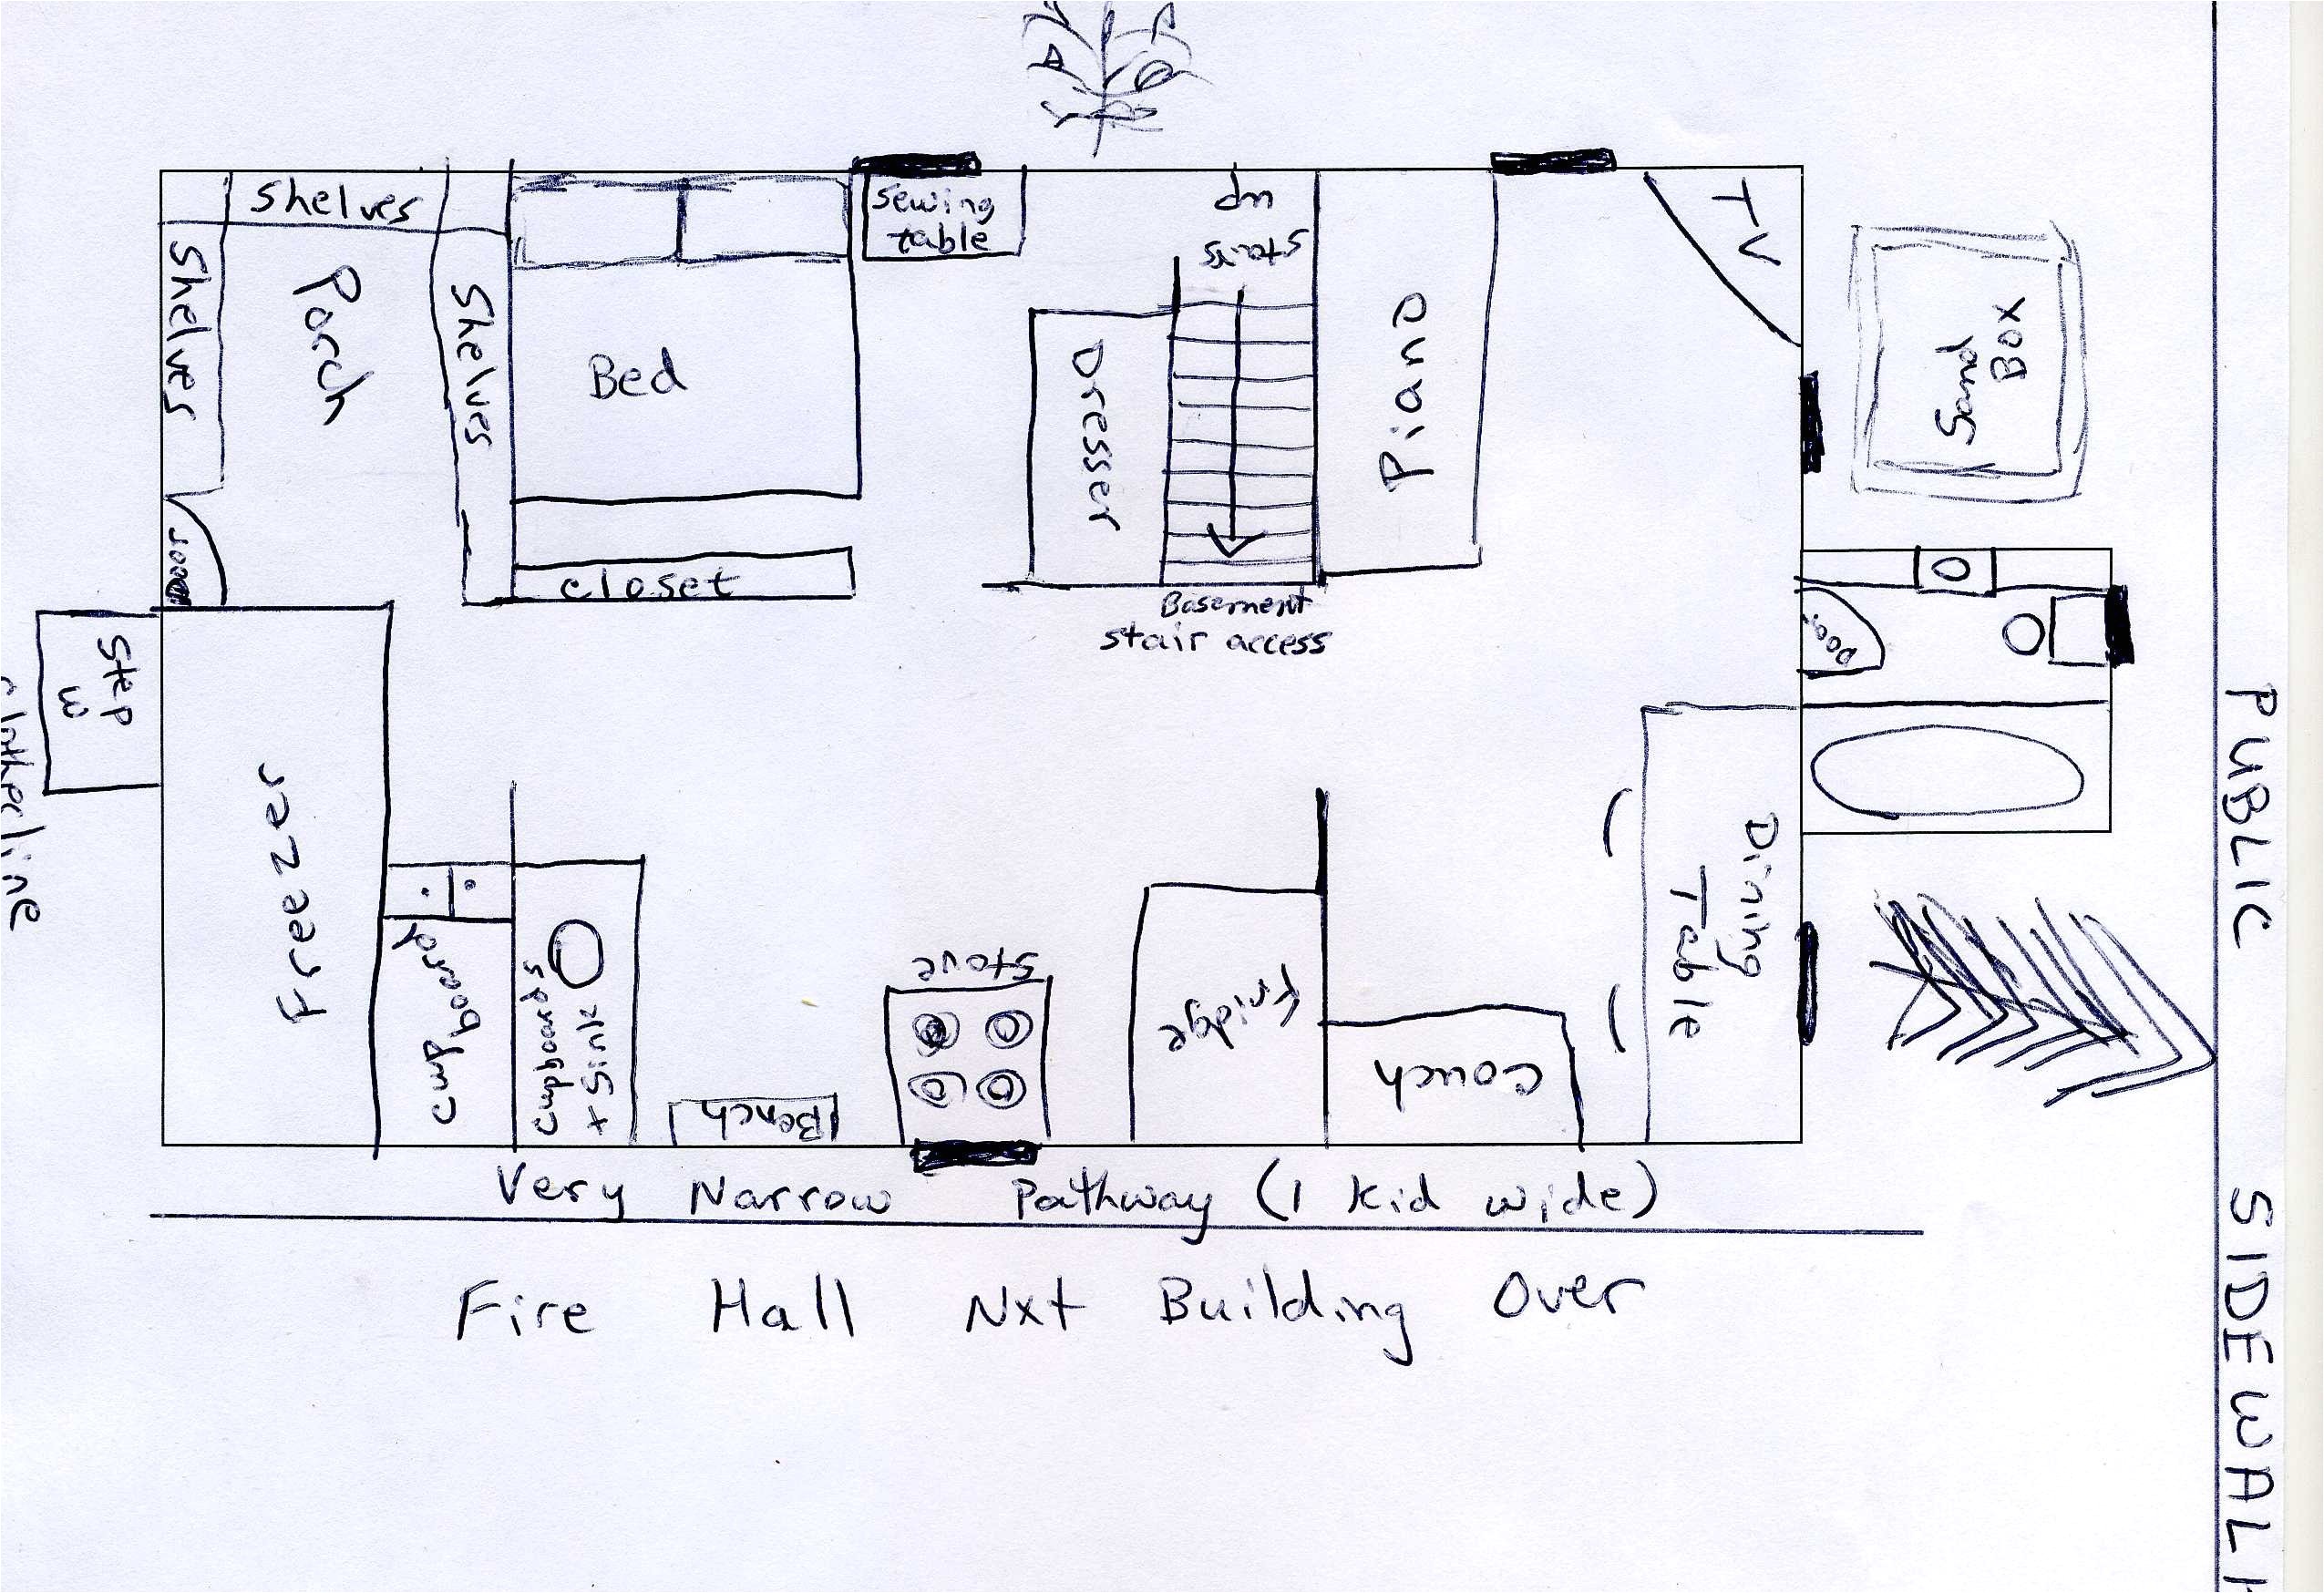 Shelves
Shelves
Porch
Shelves
Bed
Sewing
table
up
stairs
Dresser
Piano
TV
Sand
Box
closet
Door
Basement
stair access
Door
Step
Clothesline
Freezer
cupboard
cupboards
+ Sink
Bench
Stove
Fridge
couch
Dining
Table
Very Narrow Pathway (1 Kid wide)
Fire Hall Nxt Building Over
PUBLIC SIDEWAL